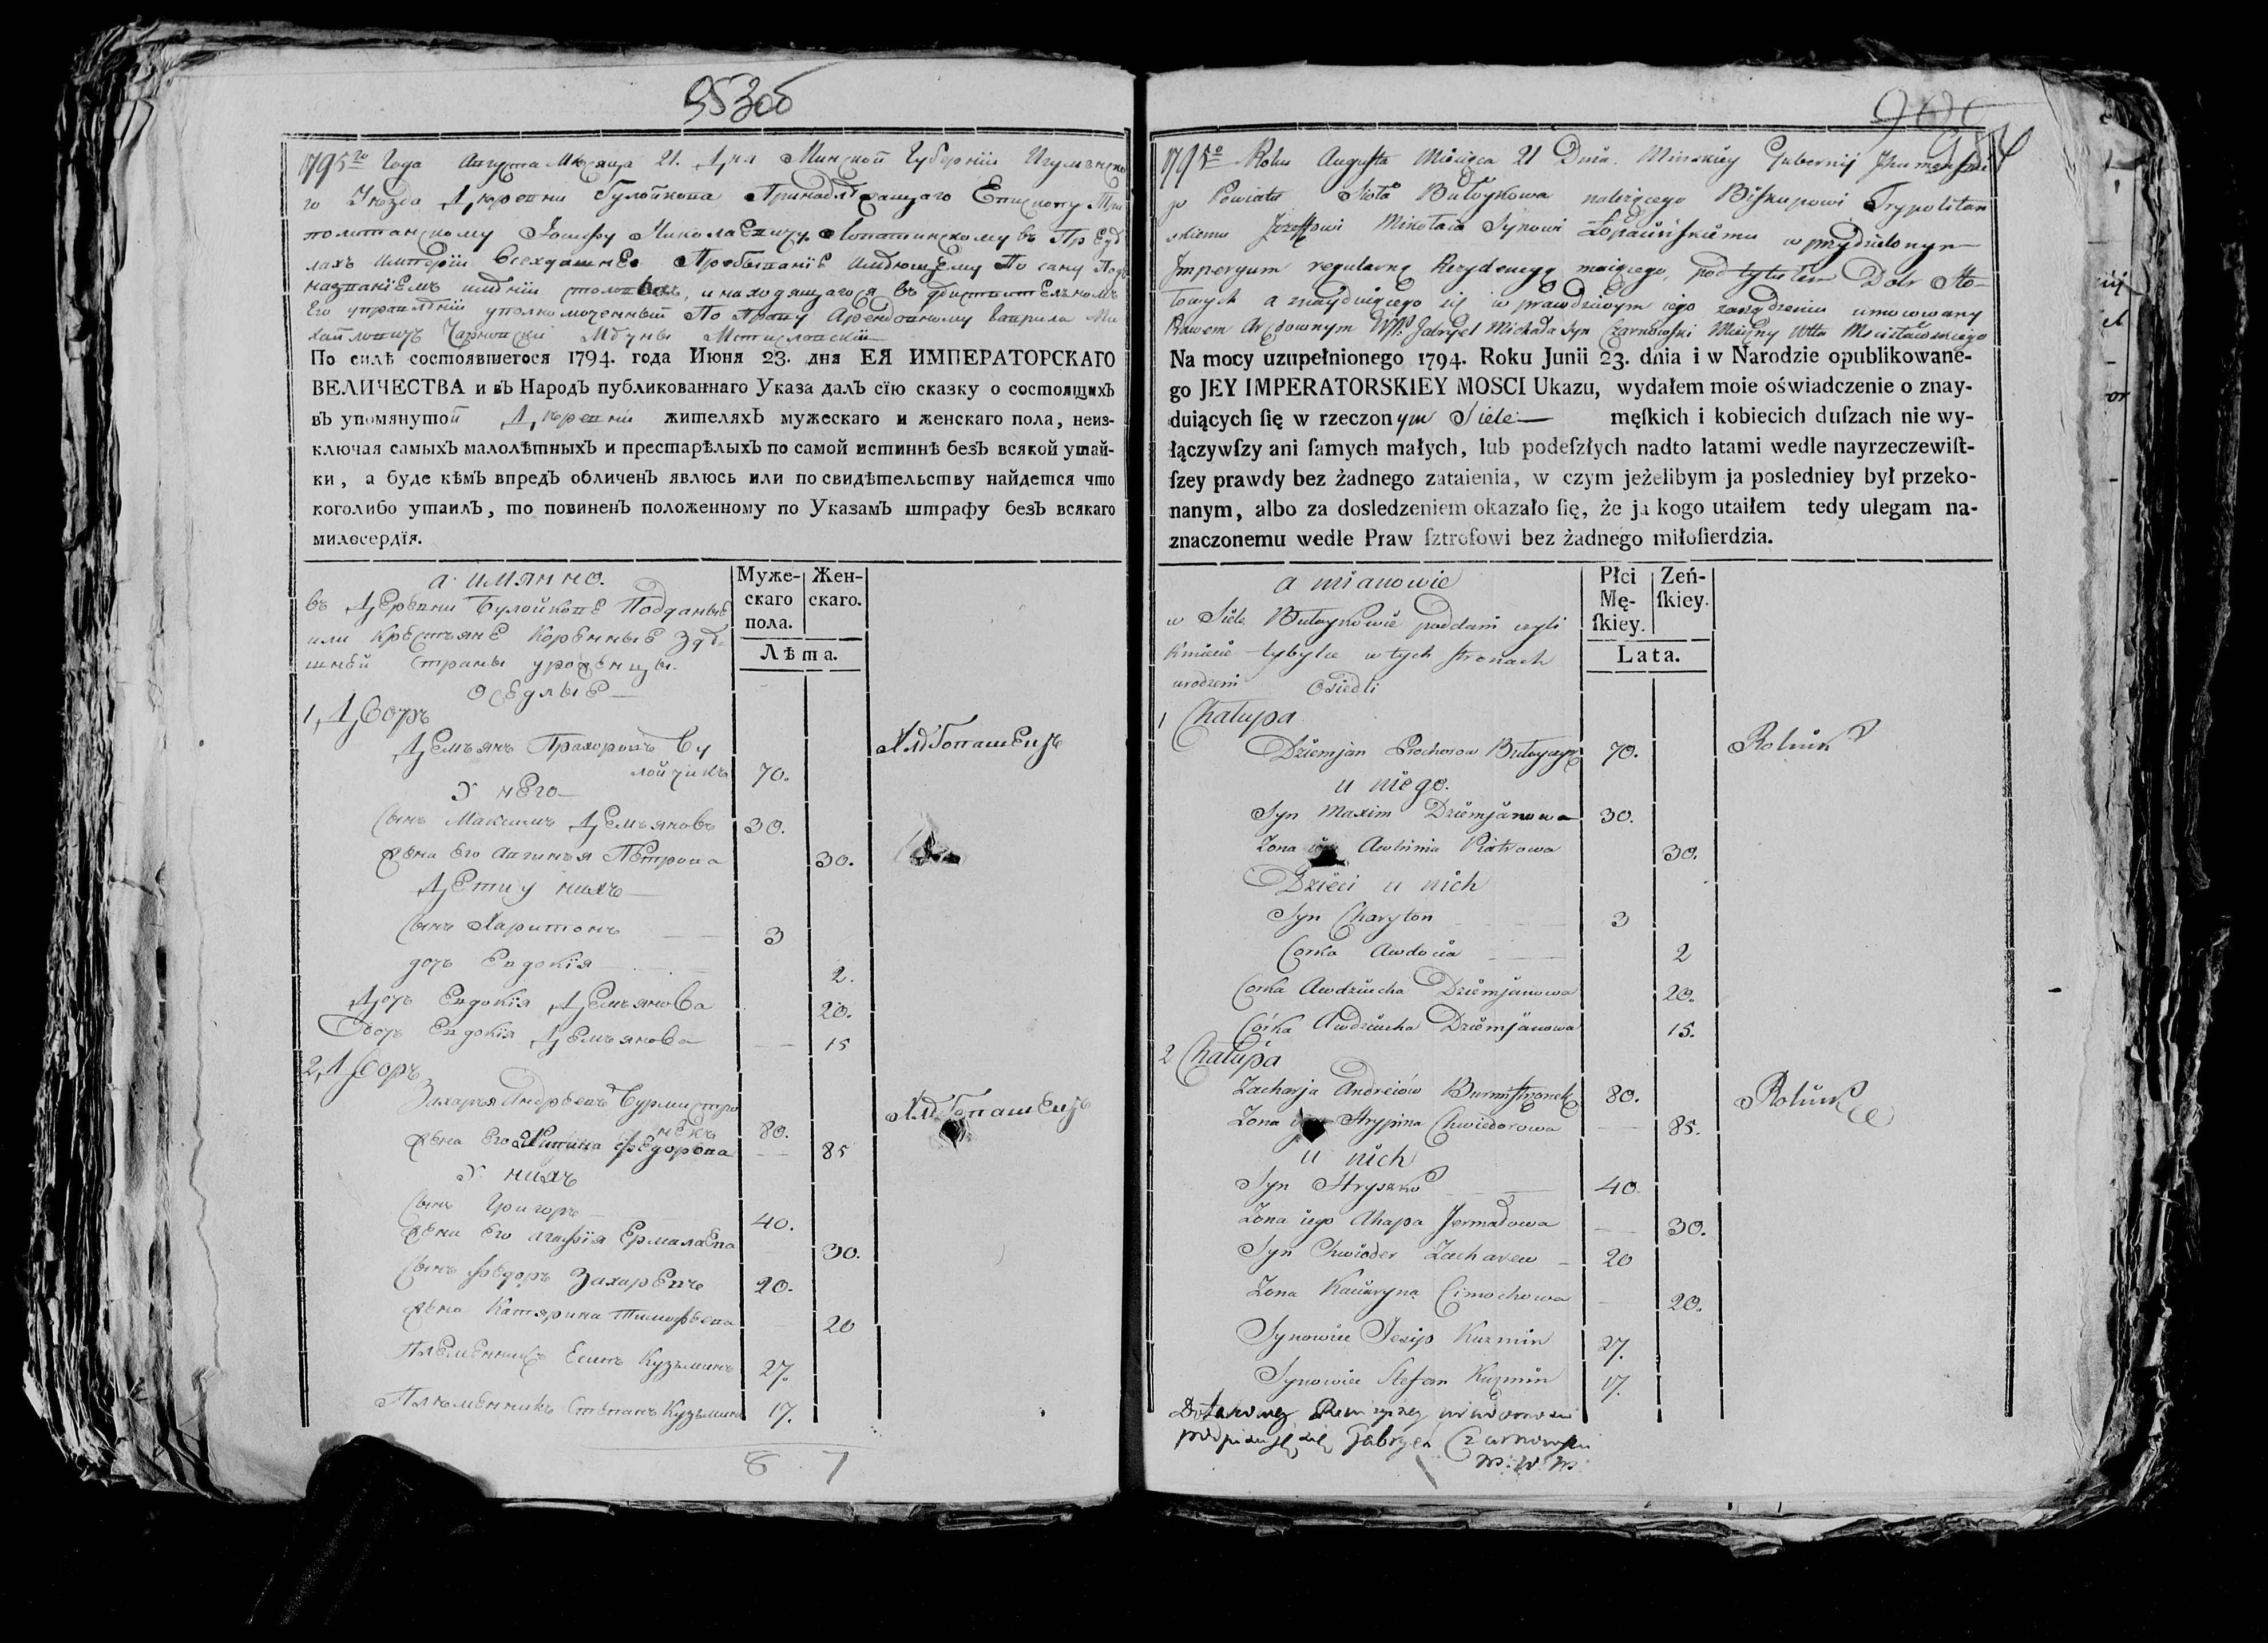 953об
1795го Года Августа Месяца 21. Дня Минской Губернїи Игуменско
го Уезда Деревни Булойкова Принадлежащаго Епископу Три
политанскому Iосифу Николаевичу Лопатинскому въ Преде
лахъ империи всехдашнее Пребыванїе имеющему По сану Подъ
названїемъ имѣнїи столовыхъ, и находящагося въ действителномъ
Его управленїи уполномоченный По праву Арендовному Гаврила Ми
хайловичъ Чарновскїй Мстиславскїй
По силѣ состоявшегося 1794. года Июня 23. дня ЕЯ ИМПЕРАТОРСКАГО
ВЕЛИЧЕСТВА и въ Народъ публикованнаго Указа далъ сїю сказку о состоящихъ
въ упомянутой Деревни жителяхъ мужескаго и женскаго пола, неиз-
ключая самыхъ малолѣтныхъ и престарѣлыхъ по самой истиннѣ безъ всякой утай-
ки, а буде кѣмъ впредъ обличенъ явлюсь или по свидѣтельству найдется что
коголибо утаилъ, то повиненъ положенному по Указамъ штрафу безъ всякаго
милосердїя.
а имянно.
Муже-
скаго
пола.
Жен-
скаго.
Лѣта.
въ Деревни Булойкове Подданые
или Крестьяне Коренные Зде-
шней Страны уроженцы.
Оседлые
1, Дворъ
Демьянъ Прахоровъ Бу
лойчикъ 70. Хлебопашецъ
У него
Сынъ Максимъ Демьяновъ 30.
Жена его Авгинья Петрова 30.
Дети у нихъ
Сынъ Харитонъ 3
дочь Евдокїя 2.
Дочь Евдокїя Демьянова 20.
Дочь Евдокїя Демьянова 15
2, Дворъ
Захарья Андреевъ Бурмистро
некъ 80. Хлебопашецъ
Жена его Федорова 85
У нихъ
Сынъ Григоръ 40.
Жена его Агафїя Ермалаева 30.
Сынъ Федоръ Захаревъ 20.
Жена Катярина Тимофеева 20
Племенникъ Есипъ Кузьминъ 27.
Племенникъ Степанъ Кузьминъ 17.
8 7
954
1795o Roku Augusta Miesiąca 21 Dnia. Minskiey Gubernij Jhumenski
go Powiatu Sioła Bułoykowa należącego Biskupowi Trypolitan
skiemu Jozeffowi Mikołaia Synowi Łopacińskiemu w przydzielonym
Imperyum regularną Rezydencyą maiącego, pod tytułem Dobr Sto-
łowych a znayduiącego się w prawdziwym iego zarządzeniu umocowany
Prawem Arędownym Gabryel Michała Syn Czarnowski Mieczny Wtta Mscisławskiego
Na mocy uzupełnionego 1794. Roku Junii 23. dnia i w Narodzie opublikowane-
go JEY IMPERATORSKIEY MOSCI Ukazu, wydałem moie oświadczenie o znay-
duiących ſię w rzeczonym Siele męſkich i kobiecich duſzach nie wy-
łączywſzy ani ſamych małych, lub podeſzłych nadto latami wedle nayrzeczewiſt-
ſzey prawdy bez żadnego zataienia, w czym jeżelibym ja posledniey był przeko-
nanym, albo za dosledzeniem okazało ſię, że ja kogo utaiłem tedy ulegam na-
znaczonemu wedle Praw ſztrofowi bez żadnego miłoſierdzia.
a mianowie
Płci
Mę-
ſkiey.
Zeń-
ſkiey.
Lata.
w Siele Bułoykowie poddani czyli
Kmiecie tybylce w tych stronach
urodzeni Osiedli
1 Chałupa
Dziemjan Prochorow Bułoyczyk 70. Rolnik
u niego.
Syn Maxim Dziemjanowa 30.
Zona Awhinia Piatrowa 30.
Dzieci u nich
Syn Charyton 3
Corka Awdocia 2
Corka Awdziucha Dziemjanowa 20.
Córka Awdziucha Dziemjanowa 15.
2 Chałupa
Zacharja Andreiów Burmistronek 80. Rolnik
Zona Hrypina Chwiedorowa 85.
u nich
Syn Hryszko 40.
Zona iego Ahapa Jermałowa 30.
Syn Chwiador Zacharew 20
Zona Kaciaryna Cimochowa 20.
Synowiec Jesip Kuzmin 27.
Synowiec Stefan Kuzmin 17.
podpisuię się Gabryel Czarnowski
M: W: M: